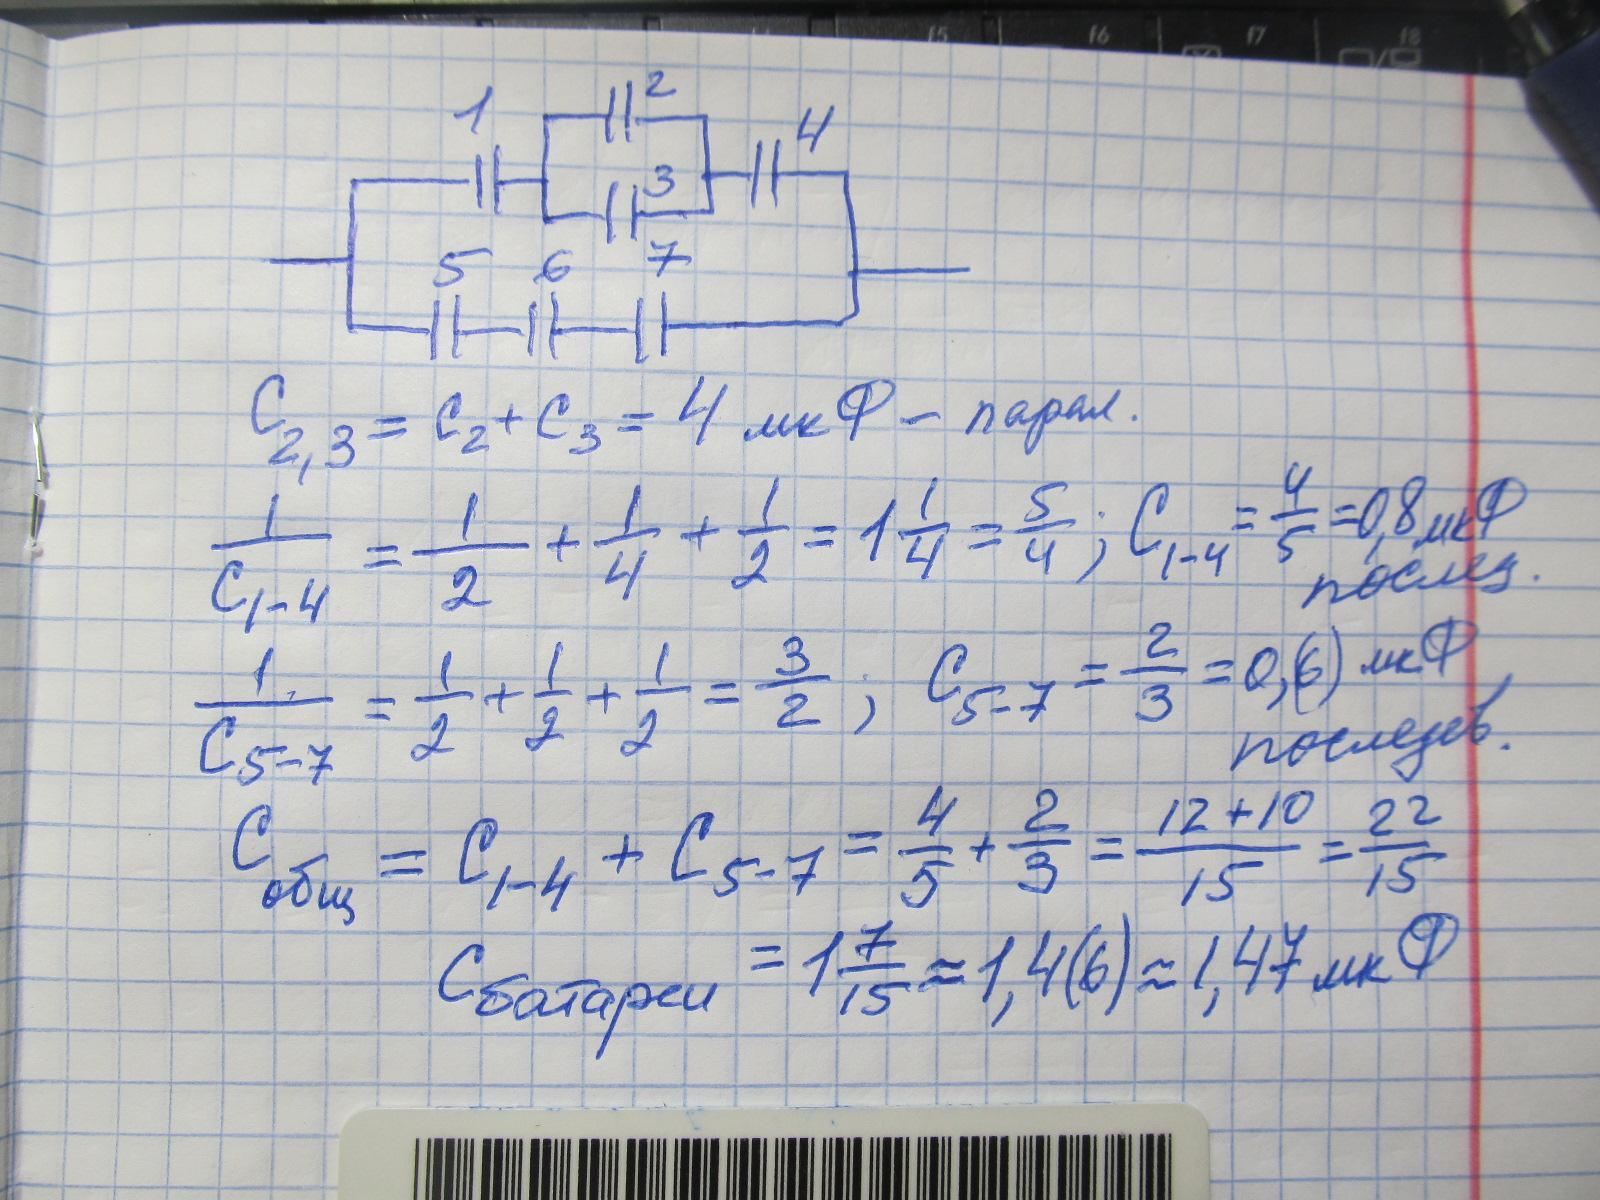 f5 f6 f7 f8
1 2 4
3
5 6 7
C2,3 = C2 + C3 = 4 мкФ – парал.
1/C1-4 = 1/2 + 1/4 + 1/2 = 1 1/4 = 5/4 ; C1-4 = 4/5 = 0,8 мкФ
послед.
1/C5-7 = 1/2 + 1/2 + 1/2 = 3/2 ; C5-7 = 2/3 = 0,(6) мкФ
последов.
Cобщ = C1-4 + C5-7 = 4/5 + 2/3 = 12+10/15 = 22/15
Cбатареи = 1 7/15 ≈ 1,4(6) ≈ 1,47 мкФ